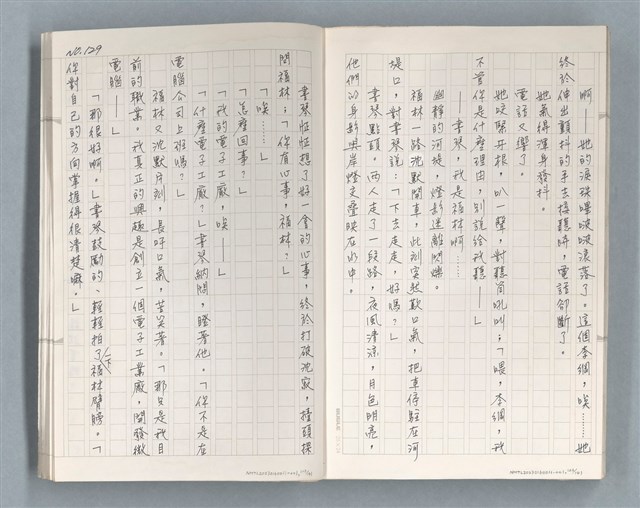 啊——她的淚珠撲簌簌滾落了。這個李綱，唉……她
終於伸出顫抖的手去接聽時，電話卻斷了。
她氣得渾身發抖。
電話又響了。
她咬緊牙根，叭一聲，對聽筒吼叫：「喂，李綱，我
不管你是什麼理由，別說給我聽——」
——李琴，我是福林啊……
幽靜的河堤，燈影迷離閃爍。
福林一路沈默開車，此刻突然歎口氣，把車停駐在河
堤口，對李琴說：「下去走走，好嗎？」
李琴點頭。兩人走了一段路，夜風清涼，月色明亮，
他們的身影與岸燈交疊映在水中。
NO.129
李琴怔怔想了好一會的心事，終於打破沈寂，擡頭探
問福林：「你有心事，福林？」
「唉……」
「怎麼回事？」
「我的電子工廠，唉——」
「什麼電子工廠？」李琴納悶，瞪著他。「你不是在
電腦公司上班嗎？」
福林又沈默片刻，長吁口氣，苦笑著。「那只是我目
前的職業。我真正的興趣是創立一個電子工業廠，開發微
電腦——」
「那很好啊。」李琴鼓勵的、輕輕拍了下福林臂膀。「
你對自己的方向掌握得很清楚嘛。」